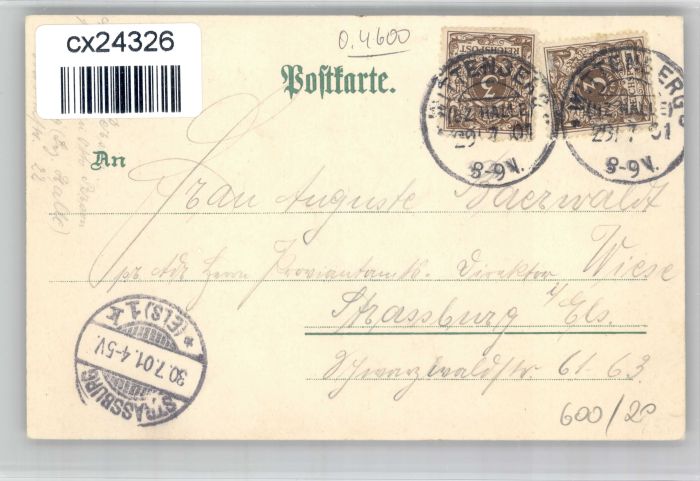 cx24326
0.4600
Postkarte.
REICHSPOST
3
WITTENBERG
(BZ. HALLE)
29 7 01
8-9V.
3
WITTENBERG
(BZ. HALLE)
29 7 01
8-9V.
An
Frau Auguste Baerwaldt
pr Adr Herrn Proviantamts-Direktor Wiese
Strassburg i/Els.
Schwarzwaldstr. 61-63
STRASSBURG
30.7.01.4-5V.
*(ELS)1.k
600/20